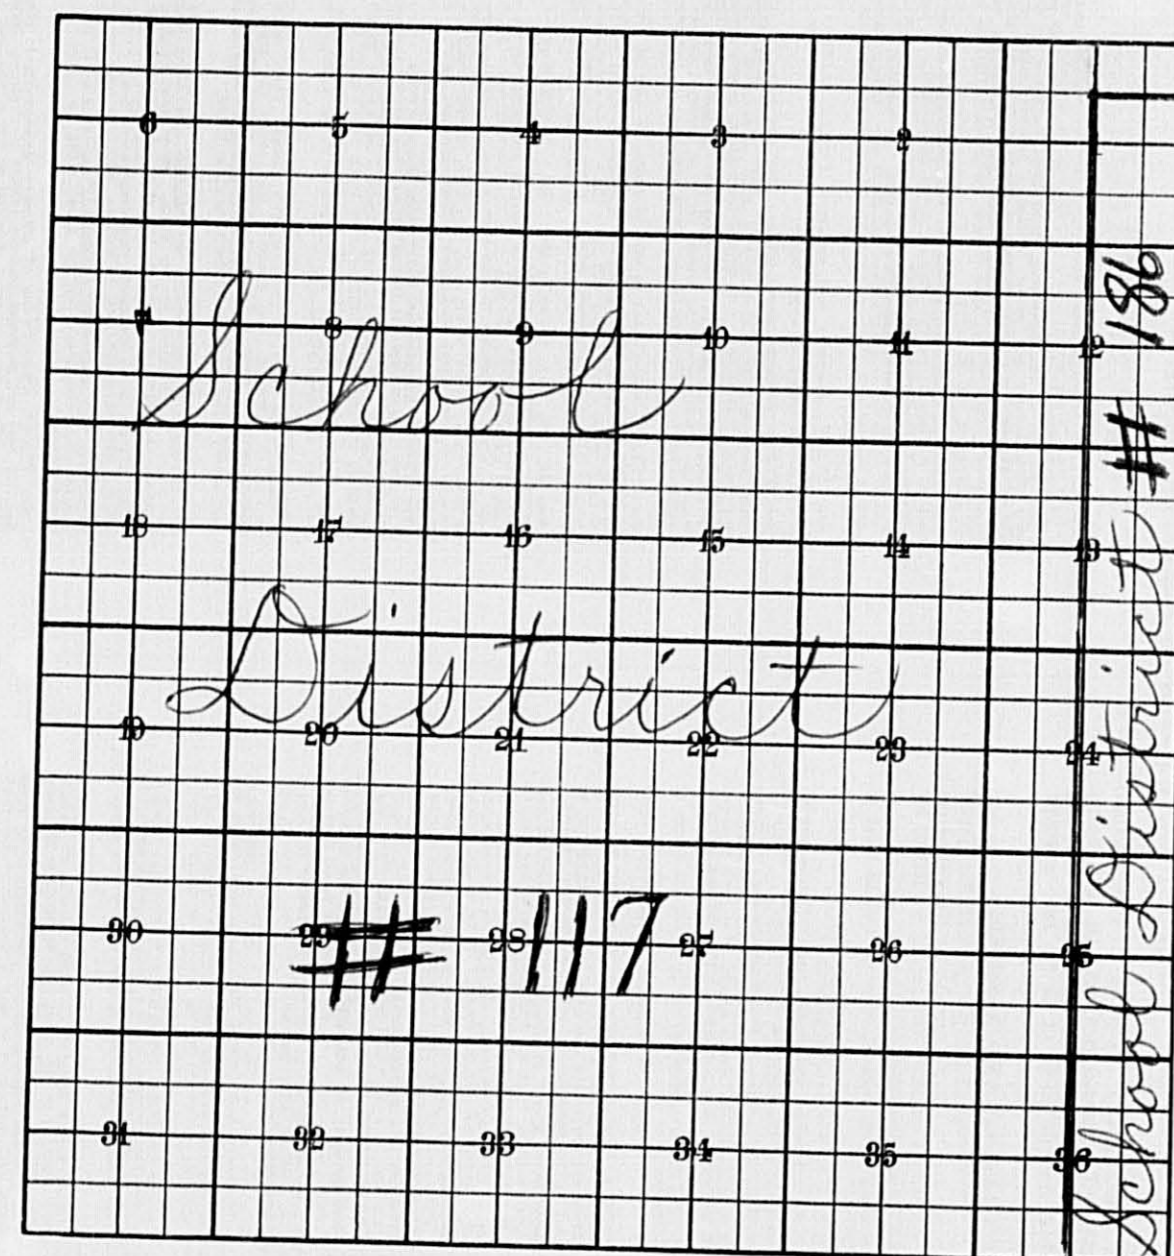 6 5 4 3 2
7 8 9 10 11 12
School
18 17 16 15 14 13
District
19 20 21 22 23 24
30 29 28 27 26 25
# 117
31 32 33 34 35 36
School District # 186